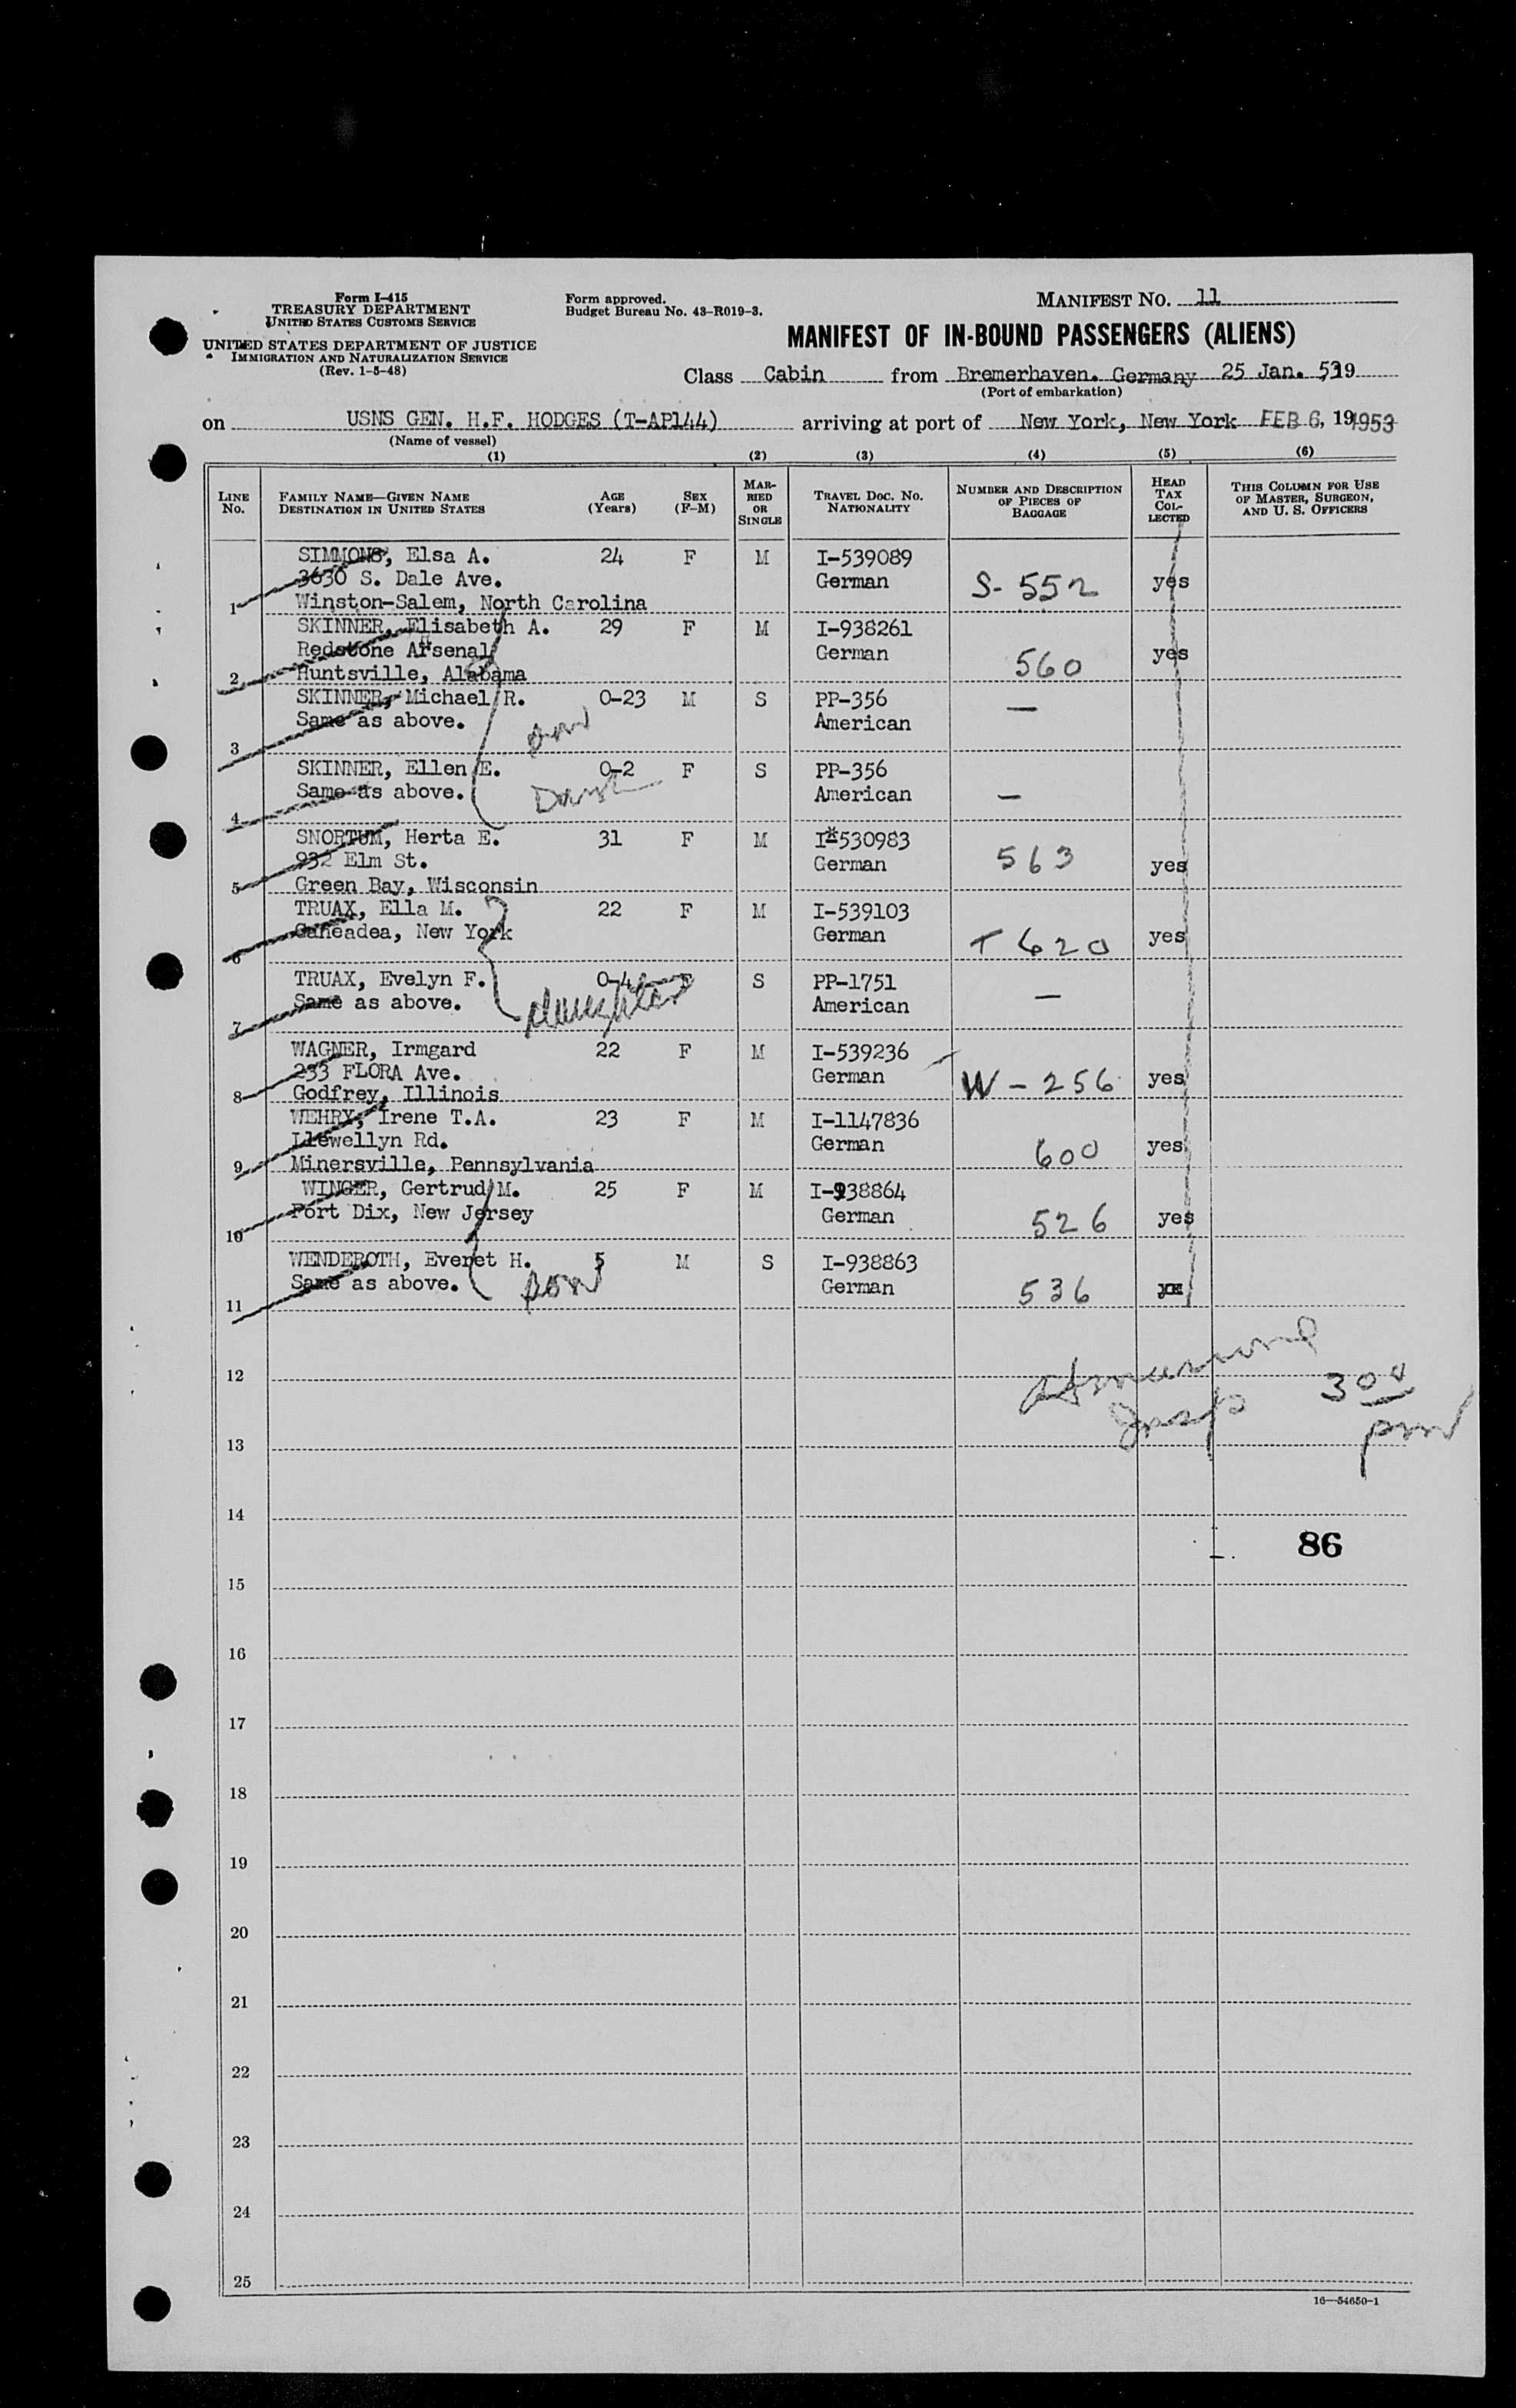 Form I-415
TREASURY DEPARTMENT
UNITED STATES CUSTOMS SERVICE
UNITED STATES DEPARTMENT OF JUSTICE
IMMIGRATION AND NATURALIZATION SERVICE
(Rev. 1-5-48)
Form approved.
Budget Bureau No. 43-R019-3.
MANIFEST NO. 11
MANIFEST OF IN-BOUND PASSENGERS (ALIENS)
Class Cabin from Bremerhaven, Germany 25 Jan. 53, 19
(Port of embarkation)
on USNS GEN. H.F. HODGES (T-AP144) arriving at port of New York, New York FEB 6, 19 1953
(Name of vessel)
(1) (2) (3) (4) (5) (6)
LINE No. FAMILY NAME—GIVEN NAME DESTINATION IN UNITED STATES AGE (Years) SEX (F-M) MARRIED OR SINGLE TRAVEL DOC. NO. NATIONALITY NUMBER AND DESCRIPTION OF PIECES OF BAGGAGE HEAD TAX COLLECTED THIS COLUMN FOR USE OF MASTER, SURGEON, AND U. S. OFFICERS
SIMMONS, Elsa A. 24 F M I-539089
3630 S. Dale Ave. German S-552 yes
1 Winston-Salem, North Carolina
SKINNER, Elisabeth A. 29 F M I-938261
Redstone Arsenal German 560 yes
2 Huntsville, Alabama
SKINNER, Michael R. 0-23 M S PP-356 —
Same as above. son American
3
SKINNER, Ellen E. 0-2 F S PP-356
Same as above. Daugh American —
4
SNORTUM, Herta E. 31 F M I-530983
932 Elm St. German 563 yes
5 Green Bay, Wisconsin
TRUAX, Ella M. 22 F M I-539103
Caneadea, New York German T 620 yes
6
TRUAX, Evelyn F. 0-4 F S PP-1751
Same as above. daughter American —
7
WAGNER, Irmgard 22 F M I-539236
233 FLORA Ave. German W-256 yes
8 Godfrey, Illinois
WEHRY, Irene T.A. 23 F M I-1147836
Llewellyn Rd. German 600 yes
9 Minersville, Pennsylvania
WINGER, Gertrud M. 25 F M I-938864
Fort Dix, New Jersey German 526 yes
10
WENDEROTH, Everet H. 5 M S I-938863
Same as above. son German 536
11
12
Insp 300 pm
13
14
86
15
16
17
18
19
20
21
22
23
24
25
16—54650-1